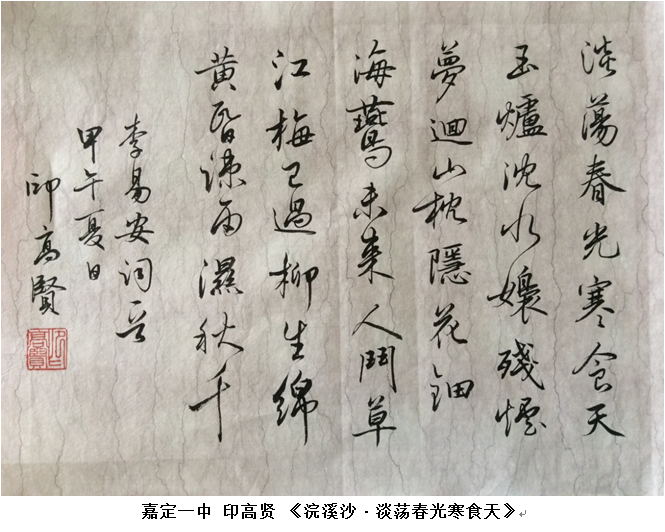 淡蕩春光寒食天
玉爐沈水嬝殘煙
夢迴山枕隱花鈿
海鷰未來人鬥草
江梅已過柳生綿
黄昏疎雨濕秋千
李易安词一首
甲午夏日
印高賢
嘉定一中 印高贤 《浣溪沙·淡荡春光寒食天》